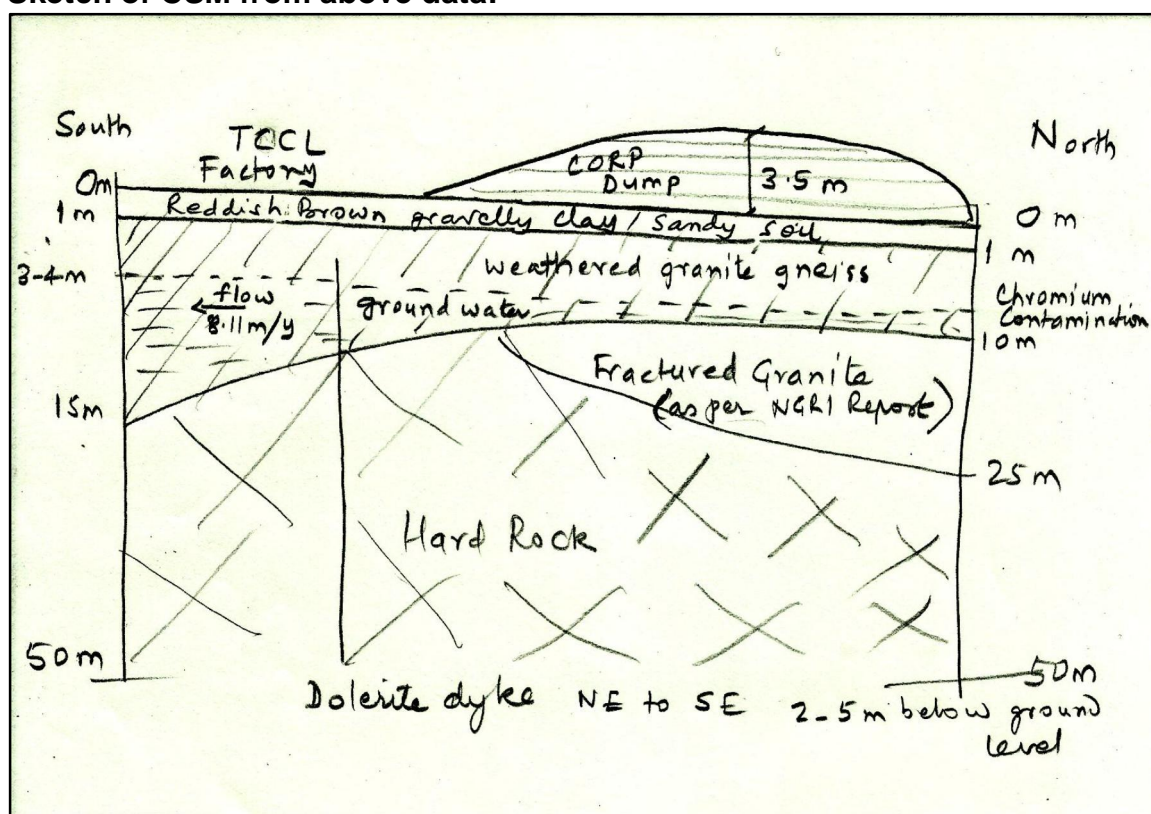 Sketch of CSM from above data:
South
TCCL
Factory
North
CORP
DUMP
3.5 m
0m
0 m
1m
Reddish Brown gravelly clay / Sandy soil
1 m
weathered granite gneiss
3-4m
flow
8.11m/y
ground water
Chromium
Contamination
10m
Fractured Granite
(as per NGRI Report)
15m
25 m
Hard Rock
50m
50m
Dolerite dyke NE to SE
2-5m below ground
level